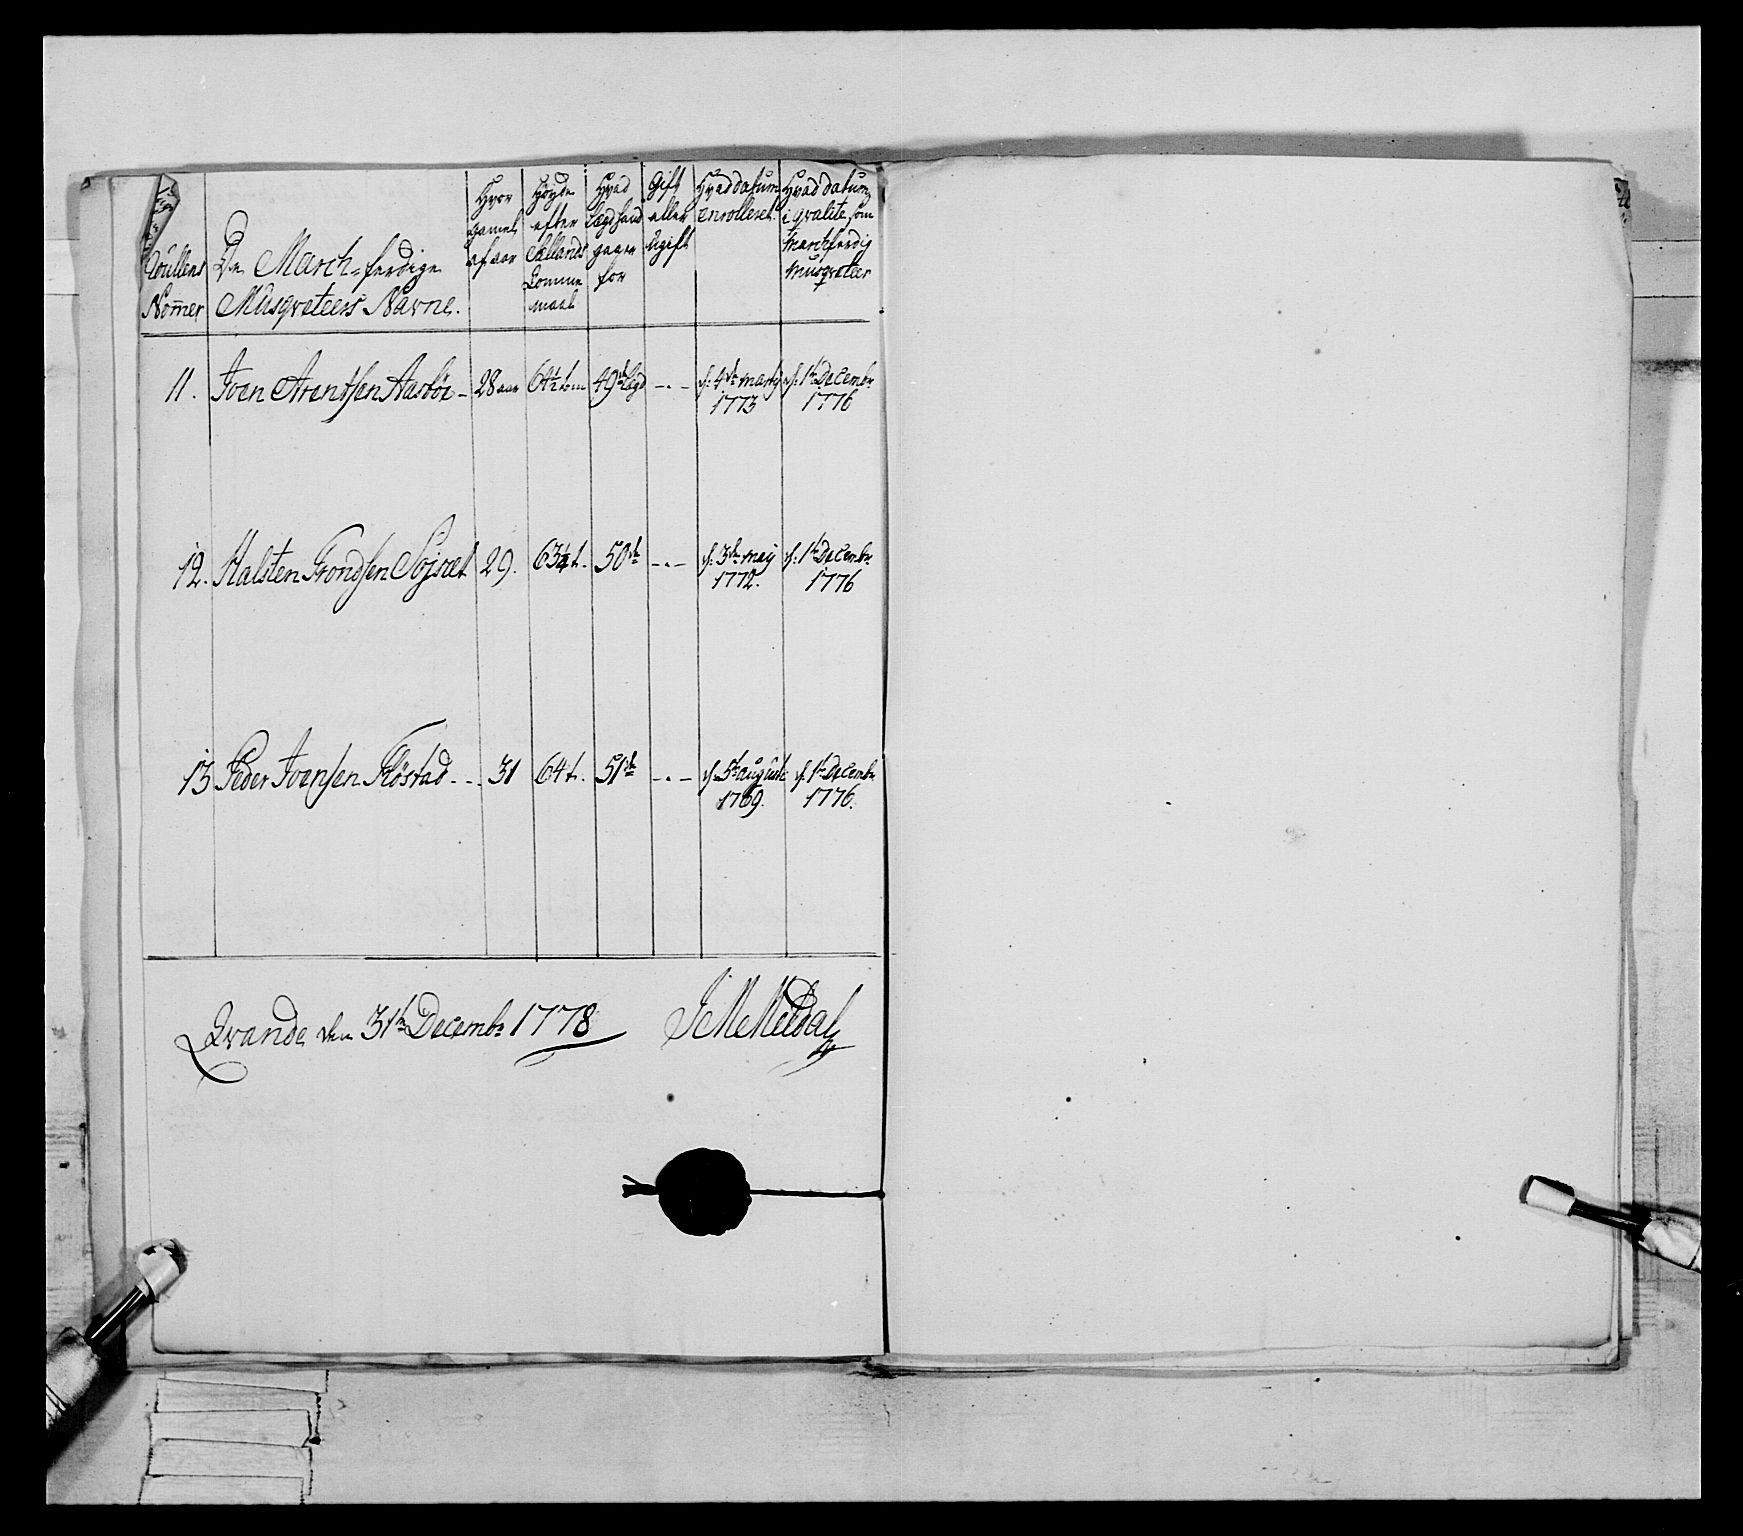 Rullens Nomer
De March-ferdige Musqveteers Navne.
Hvor gamel af aar
Høyde efter Siællands Tomme maal
Hvad Lægd hand gaaer for
Gift eller Ugift
Hvad datum enrolleret
Hvad datum i qvalite som Marchferdig Musqveteer
11. Iven Arentsen Aasböe - 28 aar 64½ tom 49de Lægd -.- d: 4de marty 1773 d: 1te Decembr 1776
12. Halsten Trondsen 29. 63¼ t. 50de -.- d: 3de maij 1772. d: 1te Decembr 1776
13 Peder Ivensen Flöstad - - 31 64 t. 51de -.- d. 5te august 1769. d. 1te Decembr 1776.
Qvande den 31te Decembr 1778 Meldal